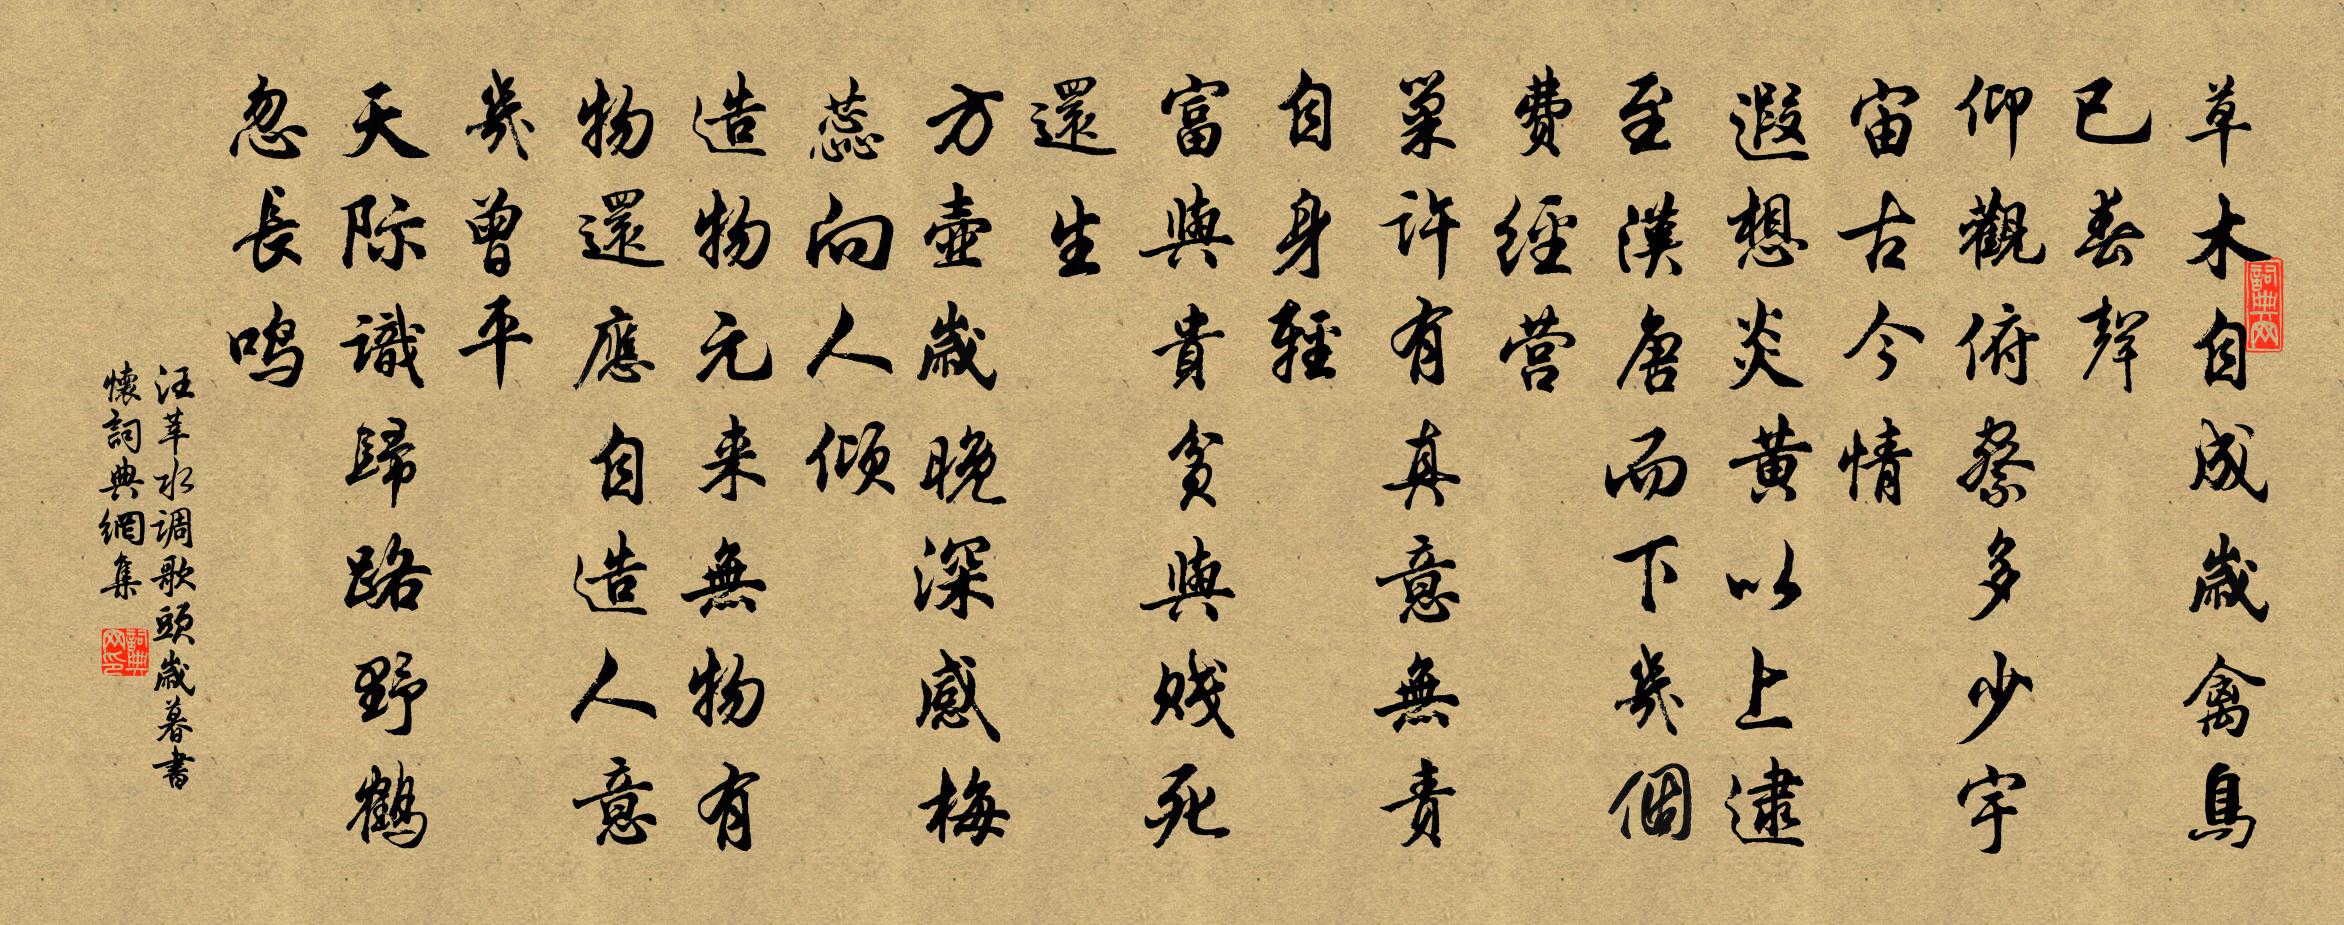 草木自成歲禽鳥
已春聲
仰觀俯察多少宇
宙古今情
遐想炎黃以上逮
至漢唐而下幾個
費經营
巢许有真意無責
自身輕
富與貴貧與贱死
還生
方壺歲晚深感梅
蕊向人倾
造物元来無物有
物還應自造人意
幾曾平
天际識歸路野鶴
忽長鸣
汪莘水调歌頭歲暮書
懷詞典網集
詞典网
詞典网印